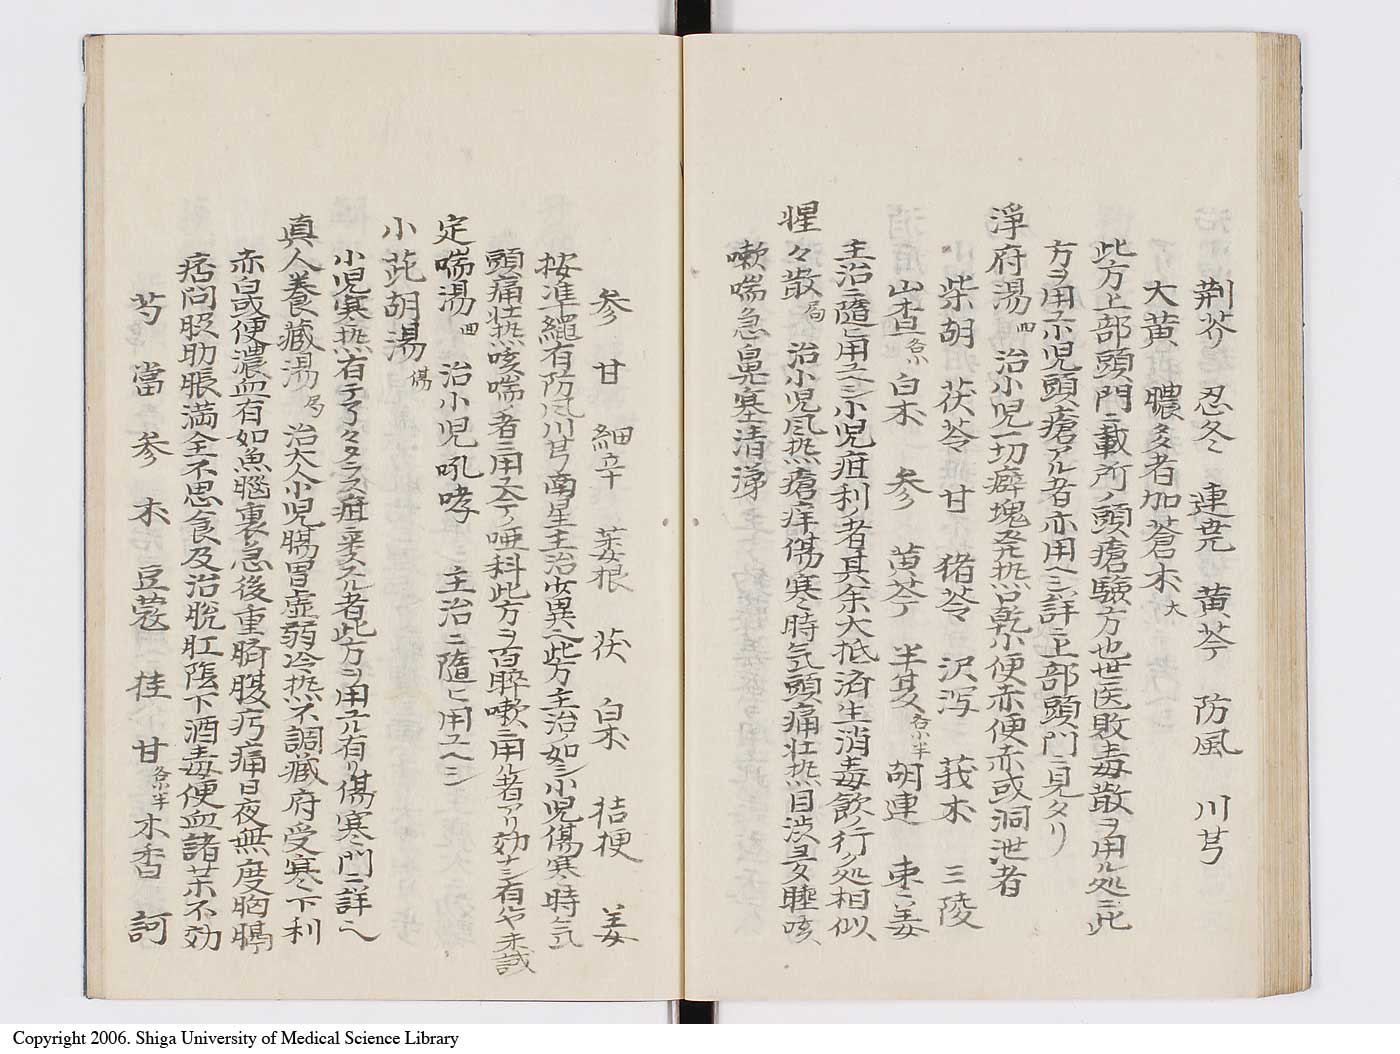 荆芥 忍冬 連尭 黄芩 防風 川芎
大黄 膿多者加蒼朮大
此方上部頭門ニ載所ノ頭瘡驗方也世医敗毒散ヲ用ル処ニ此
方ヲ用ユ小児頭瘡アル者亦用ヘシ詳ニ上部頭門ニ見タリ
淨府湯 四 治小児一切癖塊発热口乾小便赤便赤或洞泄者
柴胡 茯苓 甘 猪苓 沢泻 莪朮 三陵
山查各小 白朮 参 黄芩 半夏各小半 胡連 枣 姜
主治ニ隨ヒ用ユヘシ小児疳利者其余大抵済生消毒飲ノ行ク処相似
惺々散 局 治小児風热瘡痒傷寒時气頭痛壮热目渋多睡咳
嗽喘急鼻塞清涕
参 甘 細辛 蔞根 茯 白朮 桔梗 姜
按准繩有防風川芎南星主治少異ニ此方主治ノ如シ小児傷寒時气
頭痛壮热咳喘者ニ用ユヘシ唖科此方ヲ百晬嗽ニ用ル者アリ効ナシ有ヤ未試
定喘湯 四 治小児吼哮 主治ニ隨ヒ用ユヘシ
小茈胡湯 傷
小児寒热有テ了々タラス疳ニ変スル者此方ヲ用ユル有リ傷寒門ニ詳ヘ
真人養藏湯 局 治大人小児腸胃虚弱冷热不調藏府受寒下利
赤白或便濃血有如魚腦裏急後重臍腹㽲痛日夜無度胸膈
痞悶脇肋脹満全不思食及治脱肛墮下酒毒便血諸茱不効
芍 當 参 朮 豆蔻 桂 甘各小半 木香 訶
Copyright 2006. Shiga University of Medical Science Library